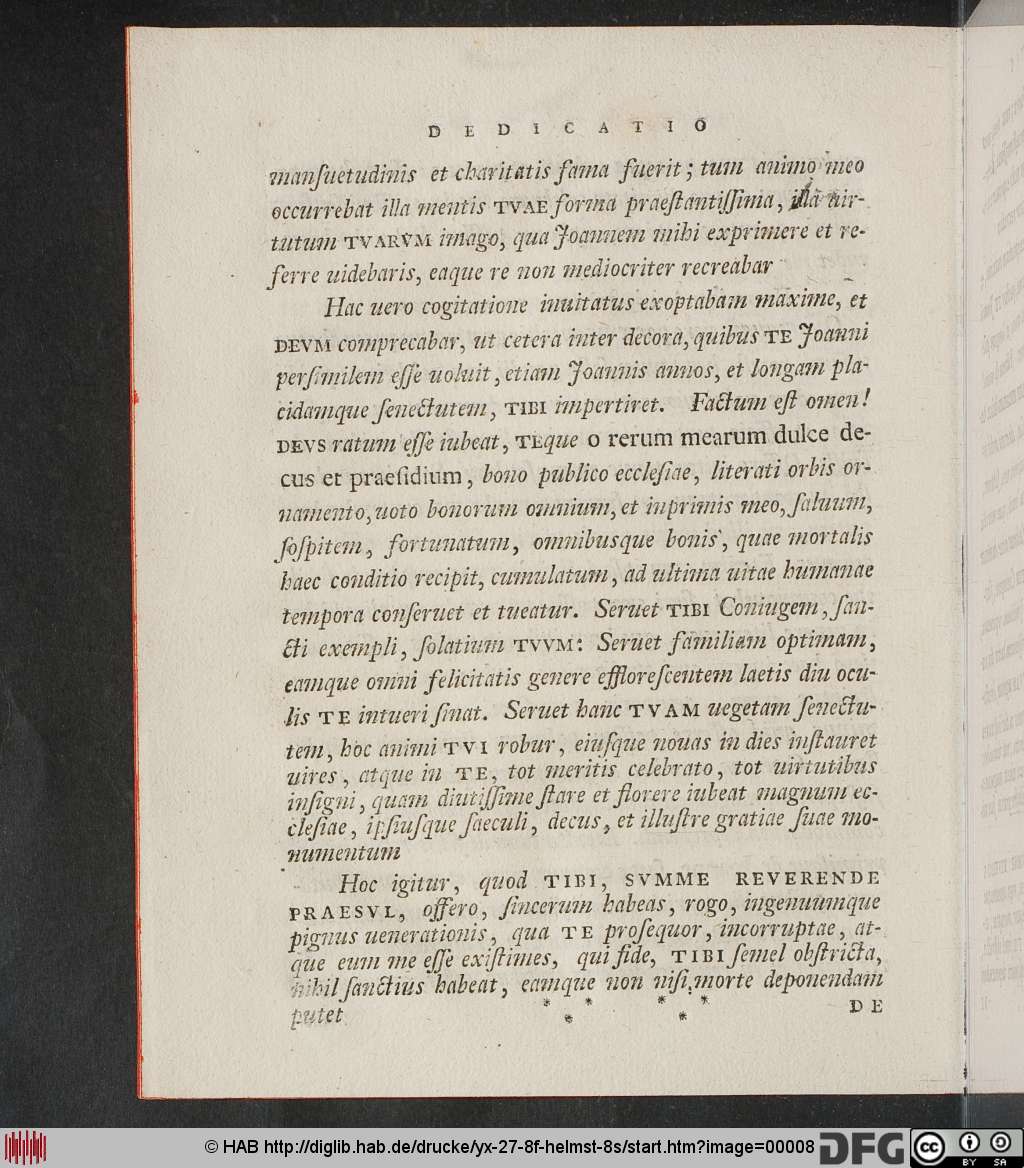 DEDICATIO
manſuetudinis et charitatis fama fuerit; tum animo meo
occurrebat illa mentis TVAE forma praeſtantiſſima, illa uir-
tutum TVARVM imago, qua Joannem mihi exprimere et re-
ferre uidebaris, eaque re non mediocriter recreabar
Hac uero cogitatione inuitatus exoptabam maxime, et
DEVM comprecabar, ut cetera inter decora, quibus TE Joanni
perſimilem eſſe uoluit, etiam Joannis annos, et longam pla-
cidamque ſenectutem, TIBI impertiret. Factum eſt omen!
DEVS ratum eſſe iubeat, TEque o rerum mearum dulce de-
cus et praeſidium, bono publico eccleſiae, literati orbis or-
namento, uoto bonorum omnium, et inprimis meo, ſaluum,
ſoſpitem, fortunatum, omnibusque bonis, quae mortalis
haec conditio recipit, cumulatum, ad ultima uitae humanae
tempora conſeruet et tueatur. Seruet TIBI Coniugem, ſan-
cti exempli, ſolatium TVVM: Seruet familiam optimam,
eamque omni felicitatis genere effloreſcentem laetis diu ocu-
lis TE intueri ſinat. Seruet hanc TVAM uegetam ſenectu-
tem, hoc animi TVI robur, eiusque nouas in dies inſtauret
uires, atque in TE, tot meritis celebrato, tot uirtutibus
inſigni, quam diutiſſime ſtare et florere iubeat magnum ec-
cleſiae, ipſiusque ſaeculi, decus, et illuſtre gratiae ſuae mo-
numentum
Hoc igitur, quod TIBI, SVMME REVERENDE
PRAESVL, offero, ſincerum habeas, rogo, ingenuumque
pignus uenerationis, qua TE proſequor, incorruptae, at-
que eum me eſſe exiſtimes, qui fide, TIBI ſemel obſtricta,
nihil ſanctius habeat, eamque non niſi morte deponendam
putet
* * * * * *
DE
© HAB http://diglib.hab.de/drucke/yx-27-8f-helmst-8s/start.htm?image=00008
DFG
cc BY SA